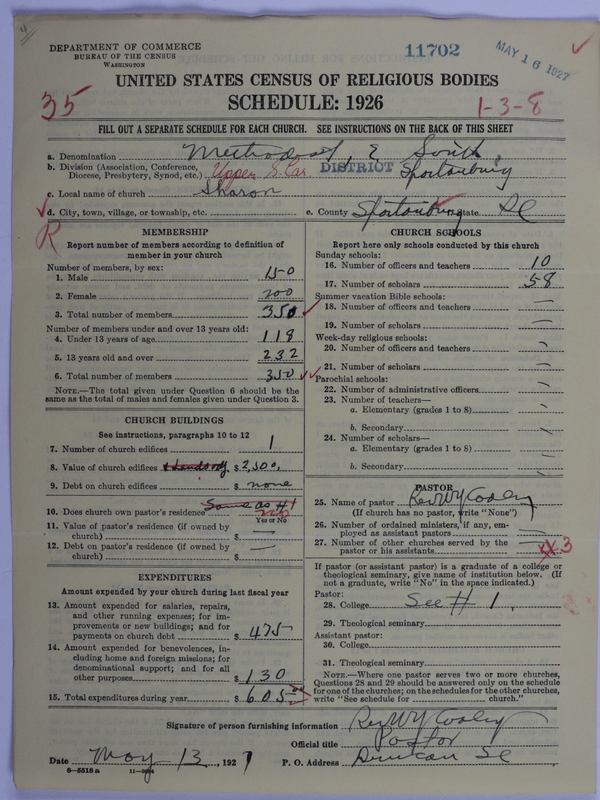 DEPARTMENT OF COMMERCE
BUREAU OF THE CENSUS
WASHINGTON
11702
MAY 16 1927
UNITED STATES CENSUS OF RELIGIOUS BODIES
35
SCHEDULE: 1926
1-3-8
FILL OUT A SEPARATE SCHEDULE FOR EACH CHURCH. SEE INSTRUCTIONS ON THE BACK OF THIS SHEET
a. Denomination Methodist, E South
b. Division (Association, Conference, Diocese, Presbytery, Synod, etc.) Upper S. Car. DISTRICT Spartanburg
c. Local name of church Sharon
d. City, town, village, or township, etc. e. County Spartanburg State SC
R
MEMBERSHIP
Report number of members according to definition of member in your church
Number of members, by sex:
1. Male 150
2. Female 200
3. Total number of members 350
Number of members under and over 13 years old:
4. Under 13 years of age 118
5. 13 years old and over 232
6. Total number of members 350
NOTE.—The total given under Question 6 should be the same as the total of males and females given under Question 3.
CHURCH BUILDINGS
See instructions, paragraphs 10 to 12
7. Number of church edifices 1
8. Value of church edifices $ 2,500,
9. Debt on church edifices $ none
10. Does church own pastor's residence Same as #1 no
Yes or No
11. Value of pastor's residence (if owned by church) $ —
12. Debt on pastor's residence (if owned by church) $ —
EXPENDITURES
Amount expended by your church during last fiscal year
13. Amount expended for salaries, repairs, and other running expenses; for improvements or new buildings; and for payments on church debt $ 475
14. Amount expended for benevolences, including home and foreign missions; for denominational support; and for all other purposes $ 130
15. Total expenditures during year $ 605
CHURCH SCHOOLS
Report here only schools conducted by this church
Sunday schools:
16. Number of officers and teachers 10
17. Number of scholars 58
Summer vacation Bible schools:
18. Number of officers and teachers —
19. Number of scholars —
Week-day religious schools:
20. Number of officers and teachers —
21. Number of scholars —
Parochial schools:
22. Number of administrative officers —
23. Number of teachers—
a. Elementary (grades 1 to 8) —
b. Secondary —
24. Number of scholars—
a. Elementary (grades 1 to 8) —
b. Secondary —
PASTOR
25. Name of pastor Rev WY Cooley
(If church has no pastor, write "None")
26. Number of ordained ministers, if any, employed as assistant pastors —
27. Number of other churches served by the pastor or his assistants 3
If pastor (or assistant pastor) is a graduate of a college or theological seminary, give name of institution below. (If not a graduate, write "No" in the space indicated.)
Pastor:
28. College See # 1,
29. Theological seminary
Assistant pastor:
30. College
31. Theological seminary
NOTE.—Where one pastor serves two or more churches, Questions 28 and 29 should be answered only on the schedule for one of the churches; on the schedules for the other churches, write "See schedule for ........ church."
Signature of person furnishing information Rev WY Cooley
Official title Pastor
Date May 13, 1927 P. O. Address Duncan SC
8—5518 a